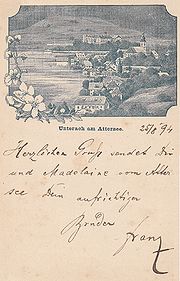 Unterach am Attersee.
25/8 94
Herzlichen Gruß sendet Dir
und Madelaine vom Atter
see Dein aufrichtiger
Bruder
Franz